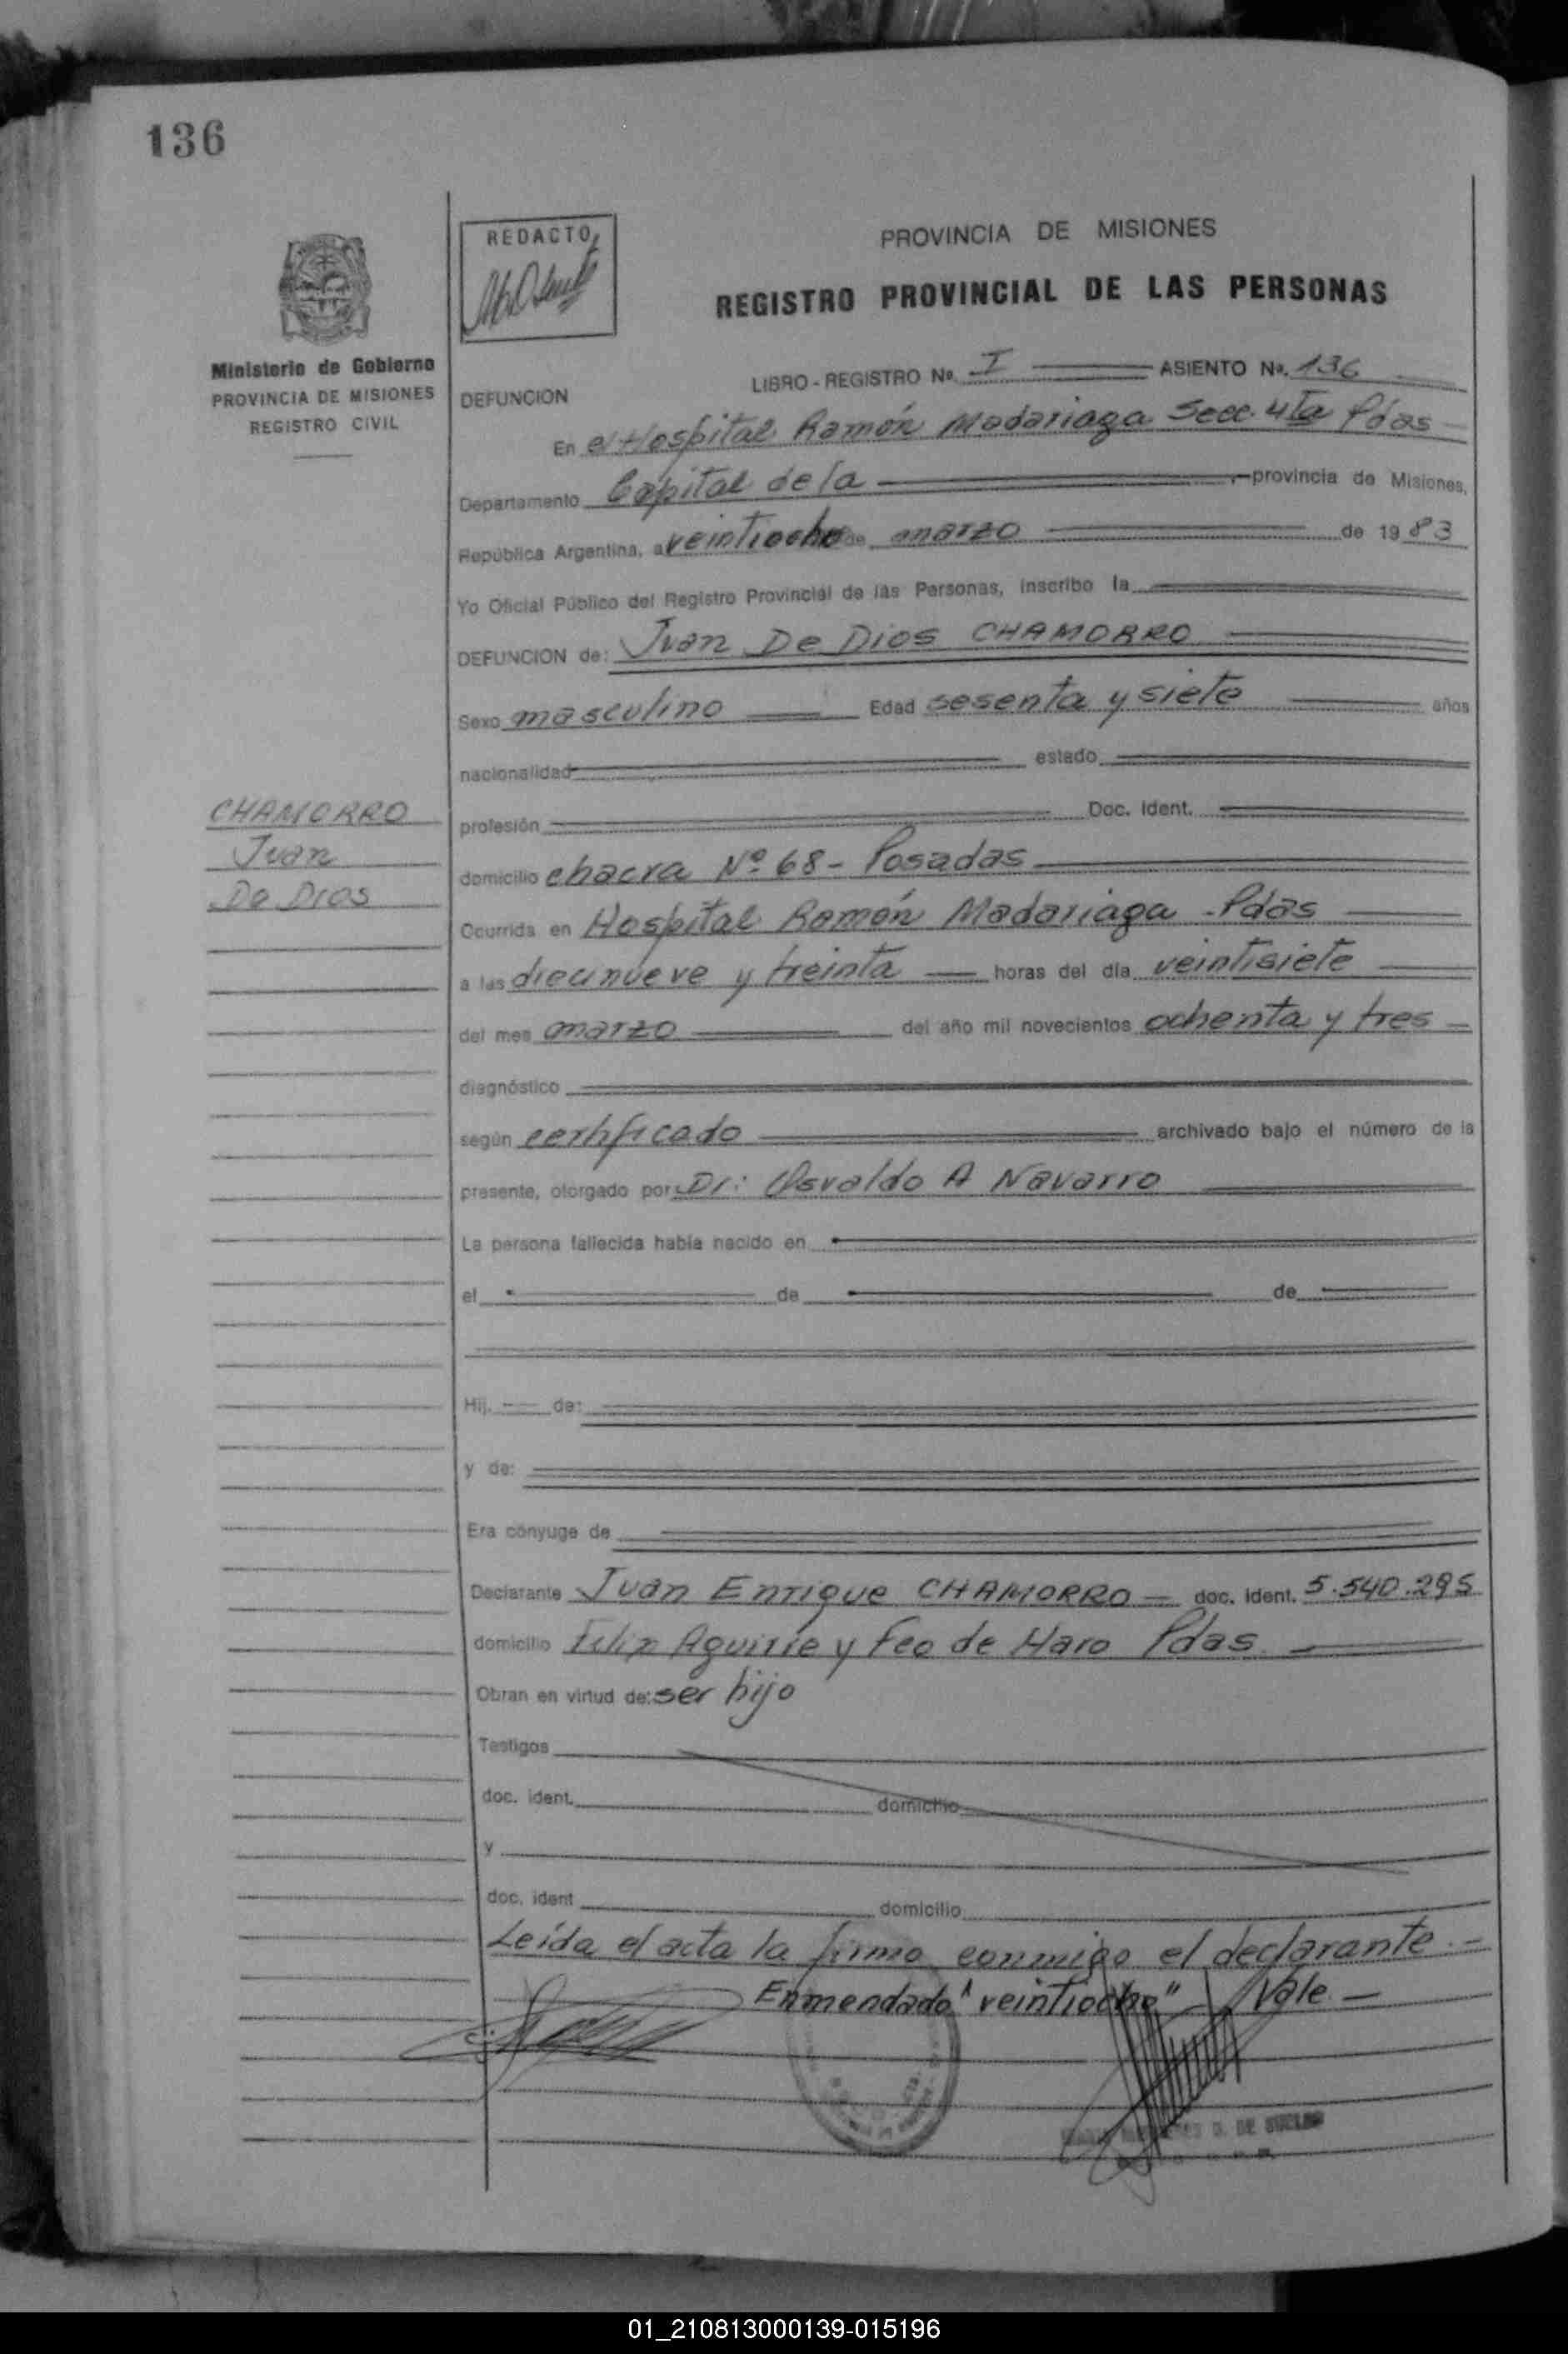 136
REDACTO
PROVINCIA DE MISIONES
REGISTRO PROVINCIAL DE LAS PERSONAS
Ministerio de Gobierno
PROVINCIA DE MISIONES
REGISTRO CIVIL
LIBRO - REGISTRO Nº. I ASIENTO Nº. 136
DEFUNCION
En el Hospital Ramón Madariaga Secc. 4ta Pdas
Departamento Capital de la provincia de Misiones,
República Argentina, a veintiocho de marzo de 1983
Yo Oficial Público del Registro Provincial de las Personas, inscribo la
DEFUNCION de: Juan De Dios CHAMORRO
Sexo masculino Edad sesenta y siete años
nacionalidad estado
CHAMORRO
Juan
De Dios
profesión Doc. Ident.
domicilio chacra Nº 68 - Posadas
Ocurrida en Hospital Ramón Madariaga - Pdas
a las diecinueve y treinta horas del día veintisiete
del mes marzo del año mil novecientos ochenta y tres
diagnóstico
según certificado archivado bajo el número de la
presente, otorgado por Dr: Osvaldo A Navarro
La persona fallecida había nacido en
el de de
Hij. de:
y de:
Era cónyuge de
Declarante Juan Enrique CHAMORRO doc. ident. 5.540.295
domicilio Aguirre y Feo de Haro Pdas
Obran en virtud de: ser hijo
Testigos
doc. ident. domicilio
y
doc. ident domicilio
Leída el acta la firma conmigo el declarante.-
Enmendado "veintiocho" Vale -
D. DE
01_210813000139-015196